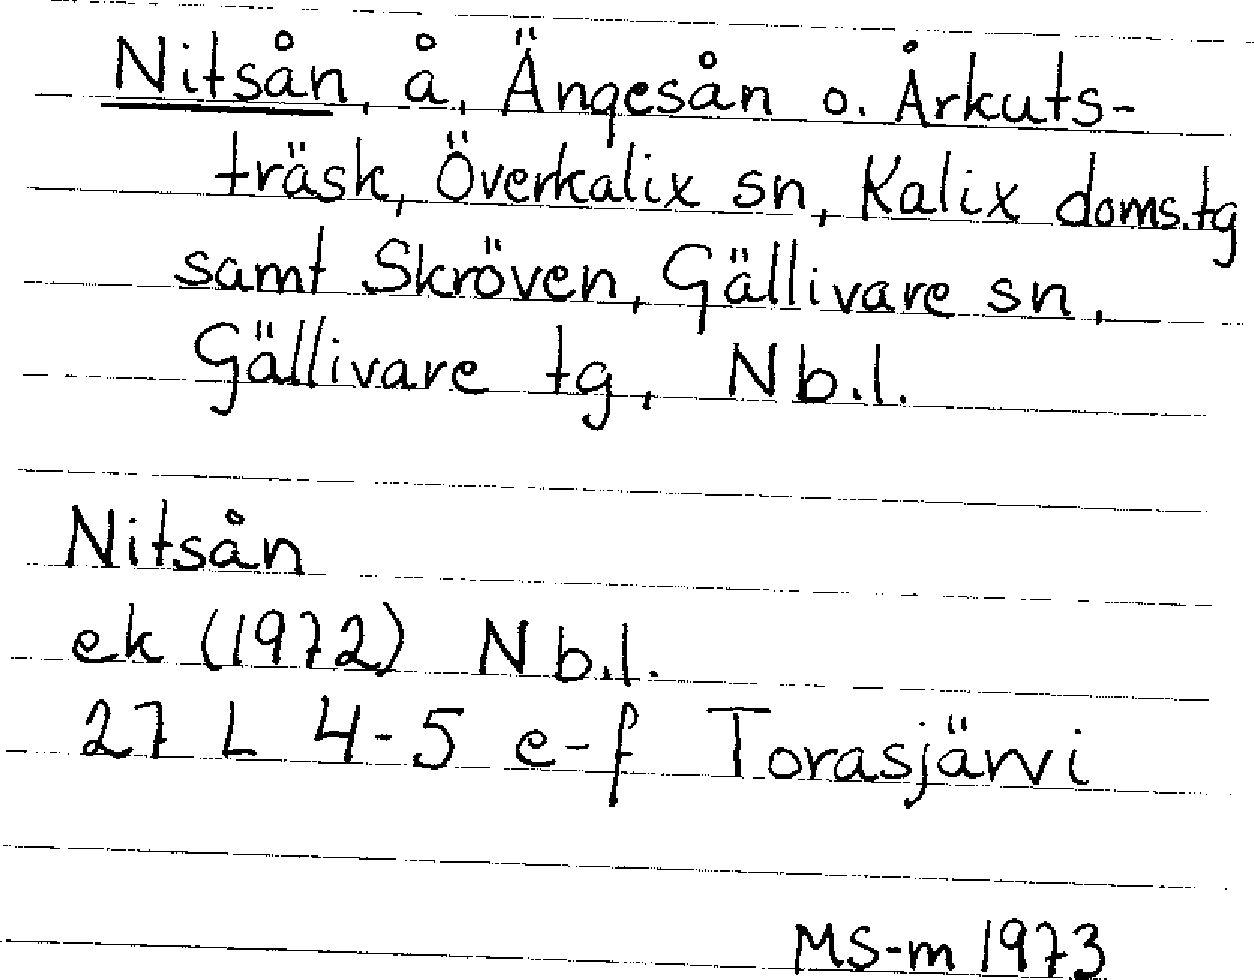 Nitsån, å, Ängesån o. Årkuts-
träsk, Överkalix sn, Kalix doms.tg
samt Skröven, Gällivare sn,
Gällivare tg, Nb.l.
Nitsån
ek (1972) Nb.l.
27 L 4-5 e-f Torasjärvi
MS-m 1973